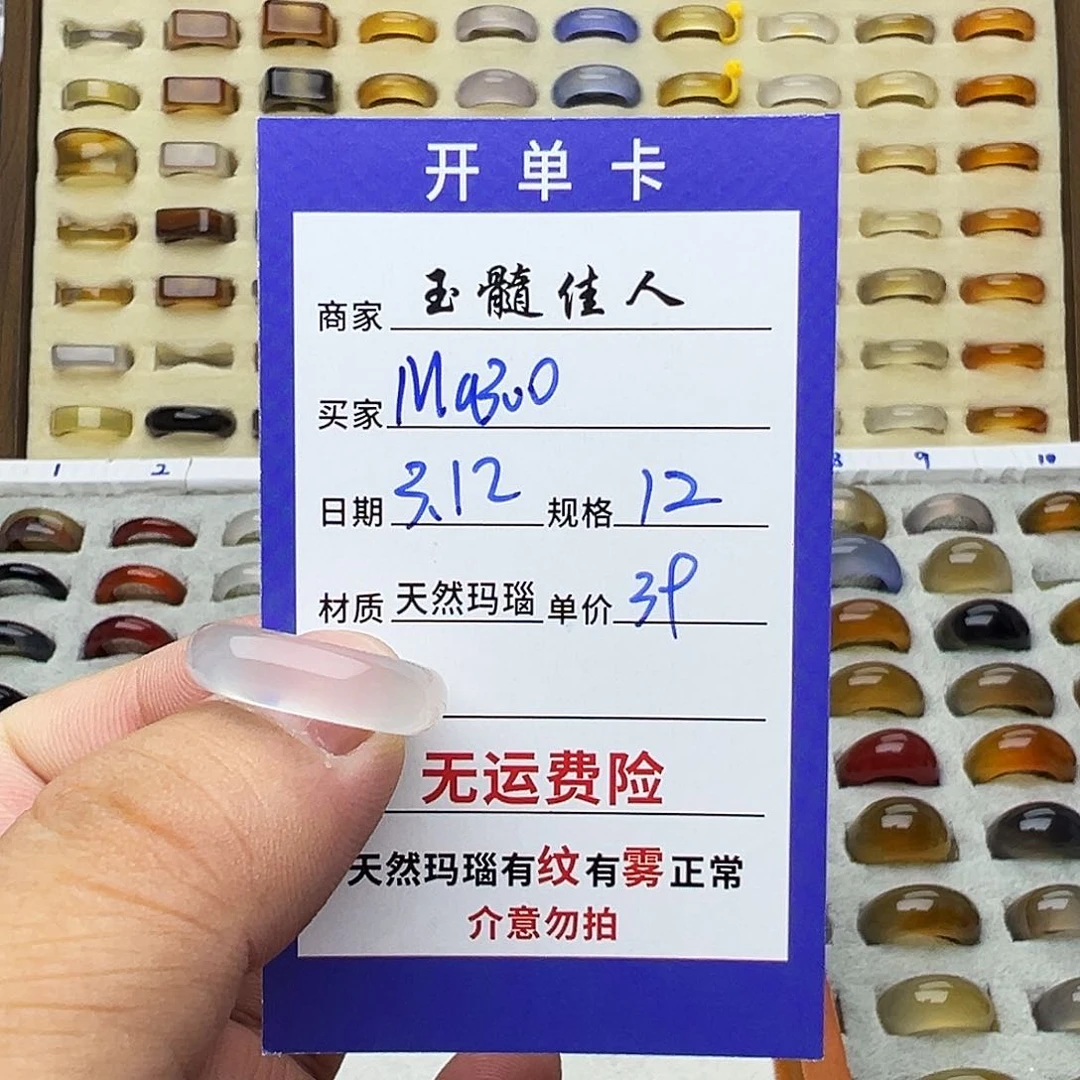 开单卡
商家 玉髓佳人
买家 Mq3u0
日期 3.12 规格 12
材质 天然玛瑙 单价
无运费险
天然玛瑙有纹有雾正常
介意勿拍
1 2 8 9 10